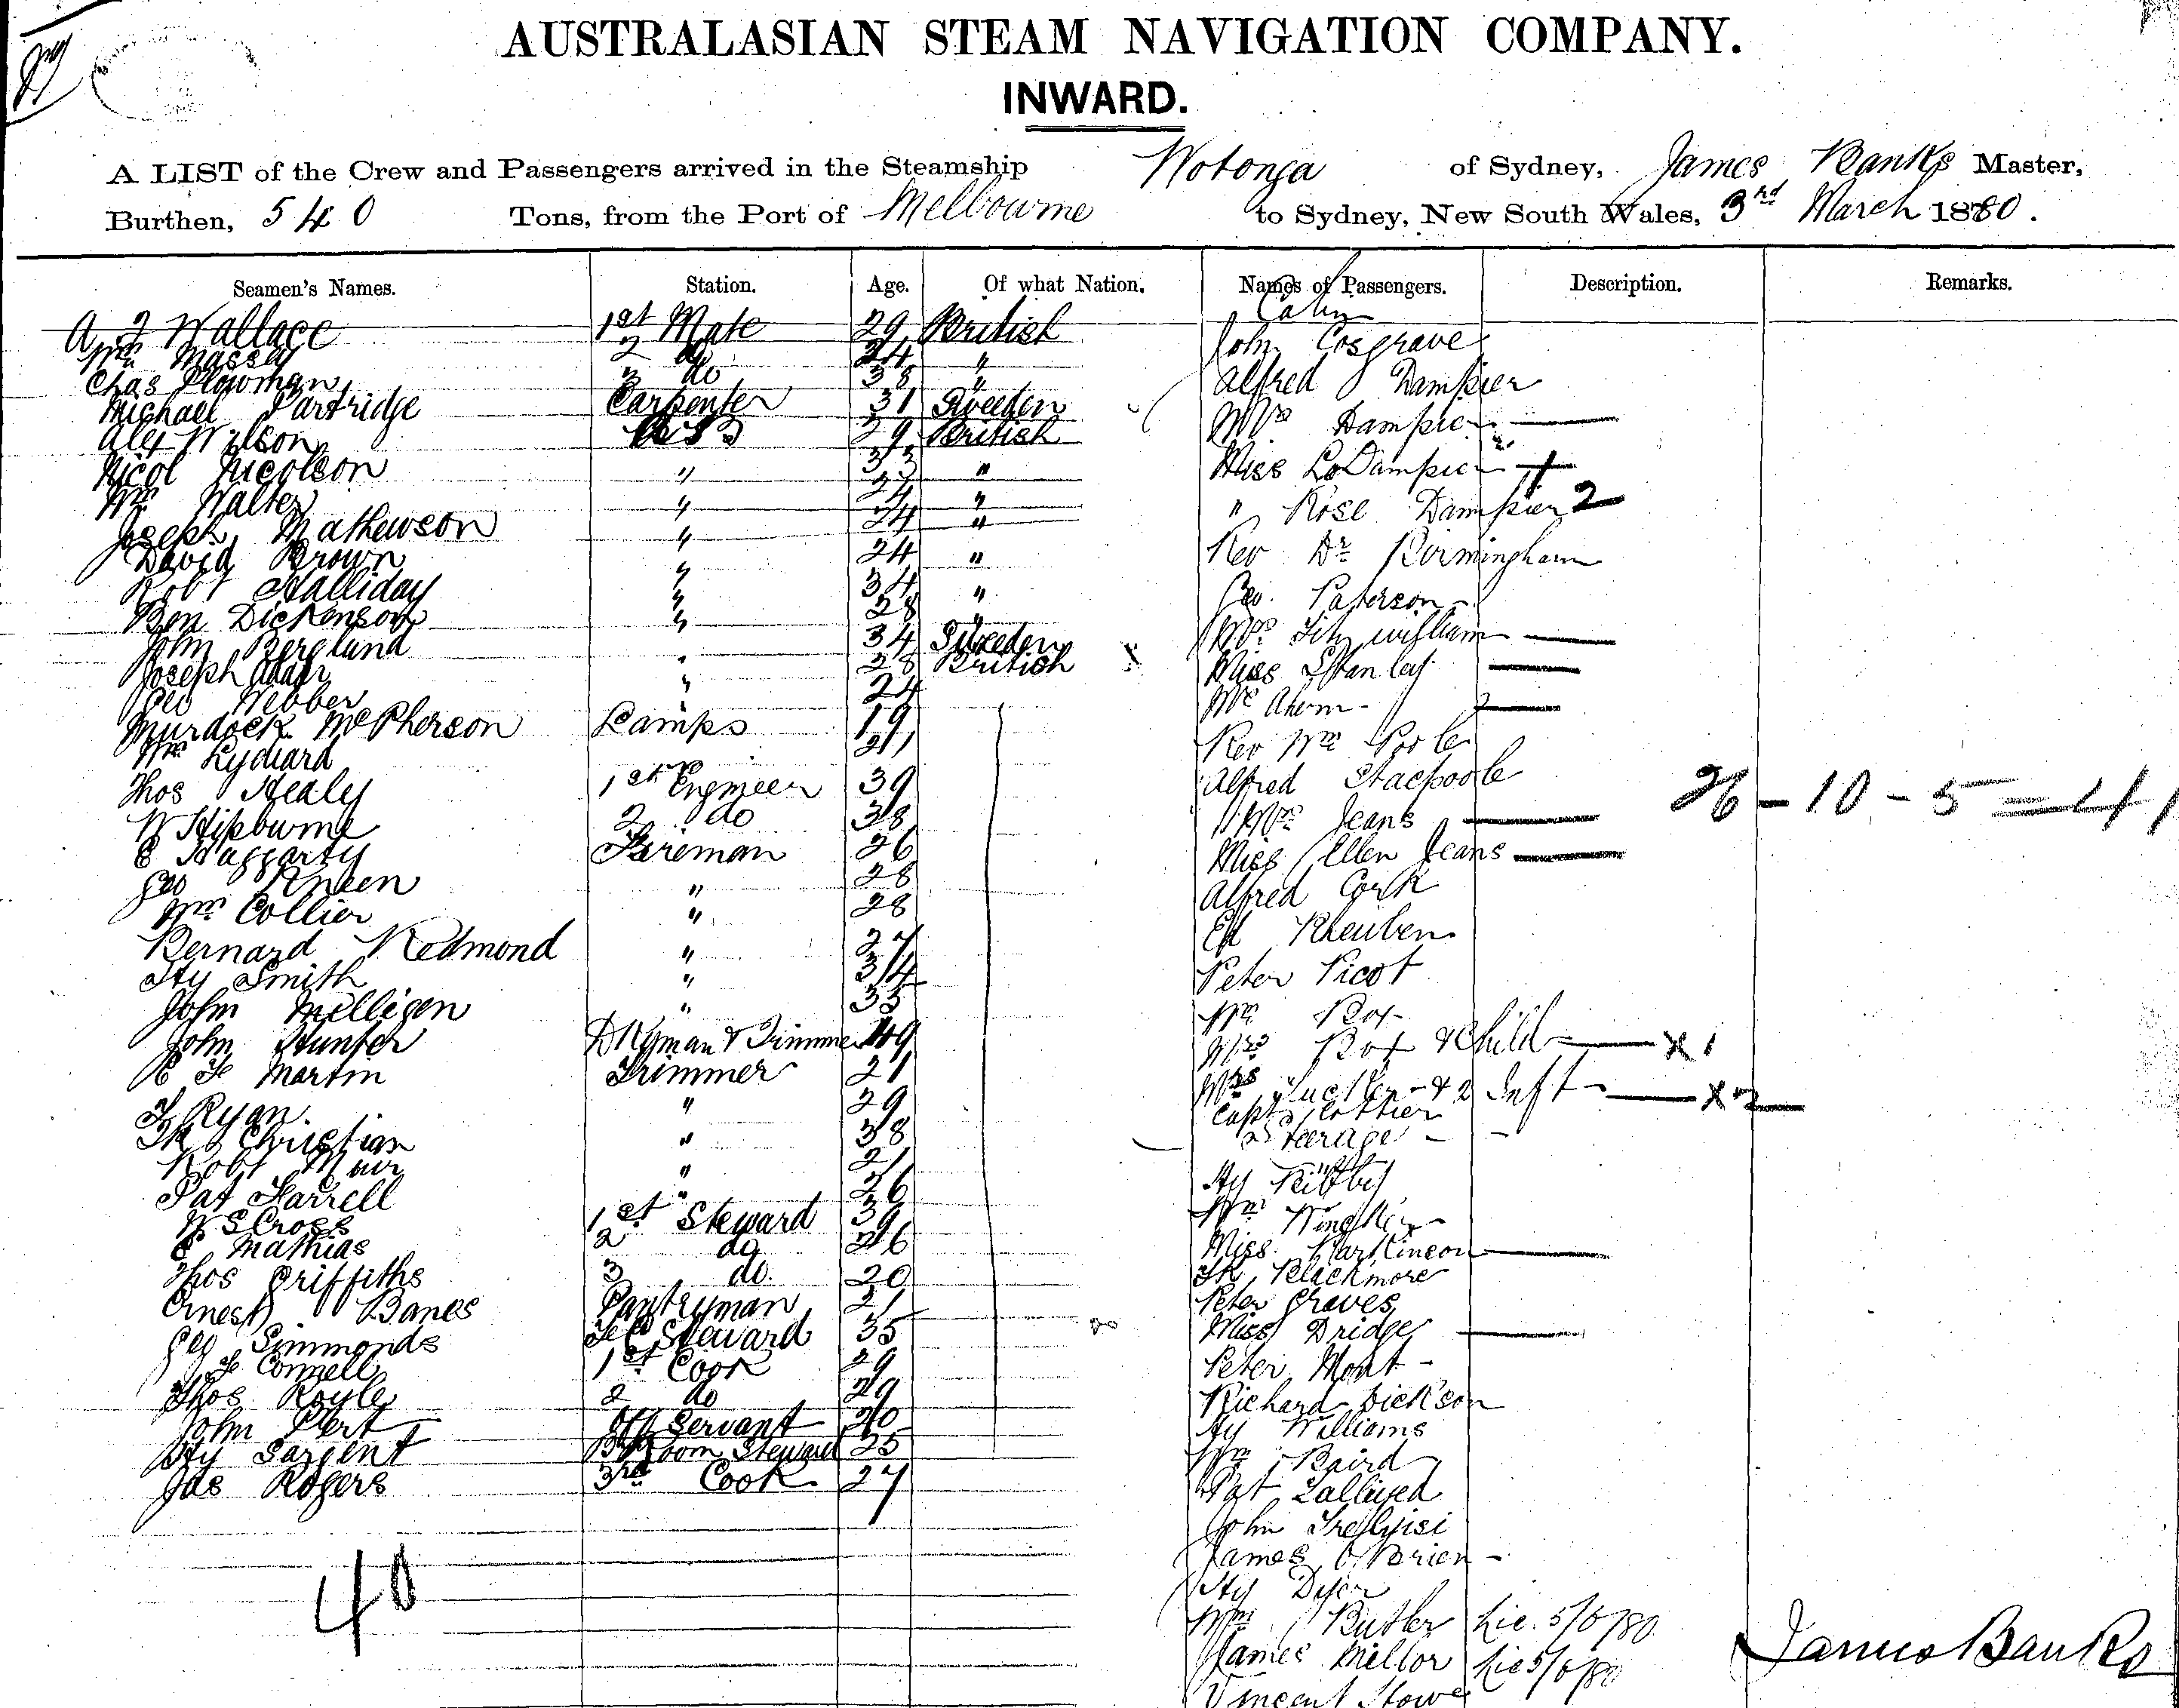 AUSTRALASIAN STEAM NAVIGATION COMPANY.
INWARD.
A LIST of the Crew and Passengers arrived in the Steamship Wotonga of Sydney, James Banks Master,
Burthen, 540 Tons, from the Port of Melbourne to Sydney, New South Wales, 3rd March 1880.
Seamen's Names. Station. Age. Of what Nation. Names of Passengers. Description. Remarks.
Cabin
A J Wallace 1st Mate 29 British
John Cosgrave
Wm Massey 2 do 24 "
Chas Plowman 3 do 38 "
Alfred Dampier
Michael Partridge Carpenter 31 Sweden
Mrs Dampier
Alex Wilson AB 39 British
Nicol Nicolson " 33 "
Miss Dampier
Wm Walter " 24 "
" Rose Dampier 2
Joseph Mathewson " 24 "
David Brown " 24 "
Rev Dr Birmingham
Robt Halliday " 34 "
Geo. Paterson
Ben Dickenson " 28 "
John Berglund " 34 Sweden
Mrs Fitzwilliam
Joseph Adair " 28 British
Miss Stanley
Geo Webber " 24
Mr Ahern
Murdock McPherson Lamps 19
Rev Wm Poole
Wm Lydiard 21
Alfred Stackpoole
Thos Healy 1st Engineer 39
26 - 10 - 5 = 41
W Hipburne 2 do 38
Mrs Jeans
E Haggarty Fireman 26
Miss Ellen Jeans
Geo Kneen " 28
Alfred Cork
Wm Collier " 28
Rheuben
Bernard Redmond " 27
Hy Smith " 34
Peter Picot
John Milligen " 35
Wm Box
John Hunter Dkyman & Trimmer 49
Mrs Box & Child x 1
R F Martin Trimmer 21
Mrs & 2 Inft x 2
J Ryan " 29
Capt Cottier
Fk Christian " 38
Steerage
Robt Muir " 21
Hy
Pat Farrell " 26
W S Cross 1st Steward 39
Wm
E Mathias 2 do 26
Miss
Thos Griffiths 3 do. 20
Fk Blackmore
Ernest Banes Pantryman 21
Peter Graves
Geo Simmonds F C Steward 35
Miss Bridge
J F Connell 1st Cook 29
Peter Mont
Thos Royle 2 do 29
Richard Dickson
John Pert Off Servant 20
Hy Williams
Hy Sargent Steward 25
Wm Baird
Jas Rogers 3rd Cook 27
Pat
John
James O'Brien
40
Hy Dyer
Wm Butler Lic. 5/6/80
James Mellor Lic 5/6/80
James Banks
Vincent Stowe